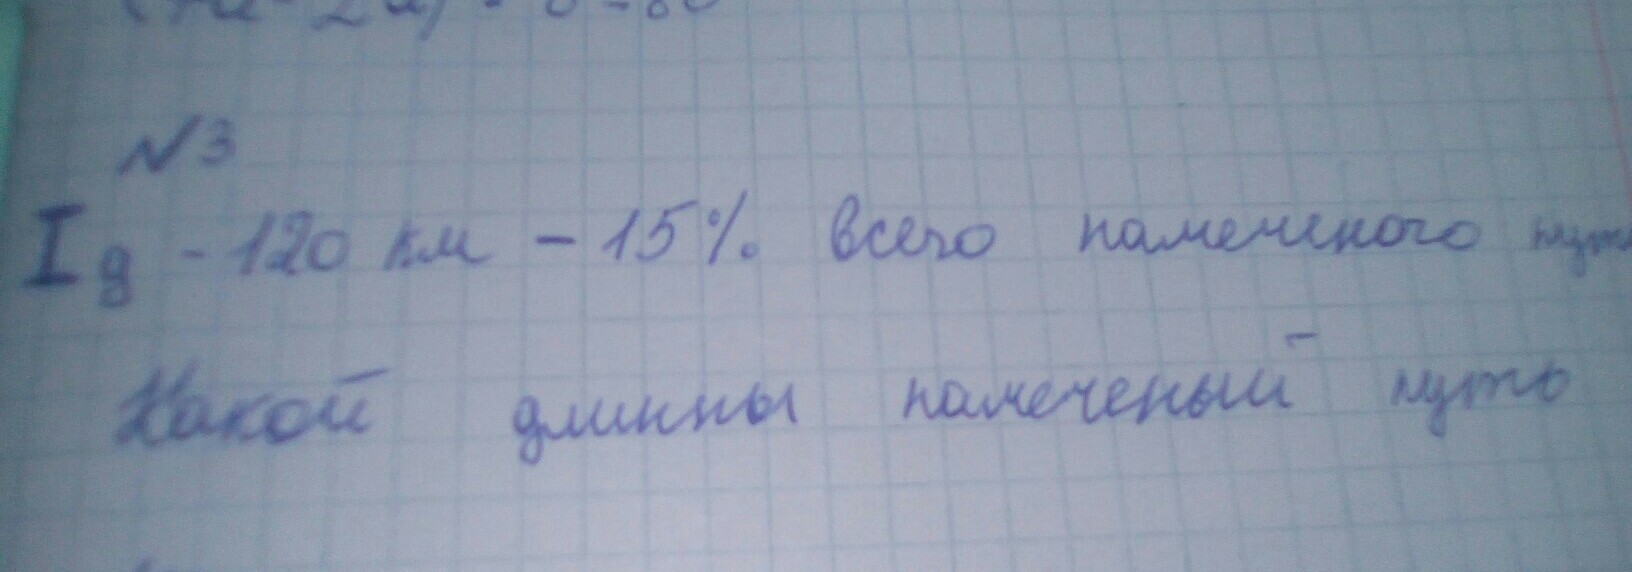 №3
I д - 120 км - 15% всего намеченого
Какой длинны намеченый путь